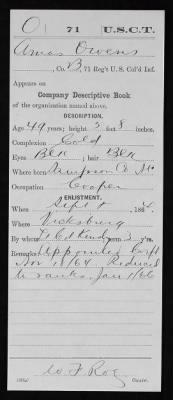 O 71 U.S.C.T.
Amos Owens
, Co. B, 71 Reg't U. S. Col'd Inf.
Appears on
Company Descriptive Book
of the organization named above.
DESCRIPTION.
Age 49 years; height 5 feet 8 inches.
Complexion Cold
Eyes Blk ; hair Blk
Where born Simpson Co
Occupation Cooper
ENLISTMENT.
When Sept , 1864.
Where Vicksburg
By whom ; term 3 y'rs.
Remarks: Appointed Corpl
Nov 1/64 Reduced
to ranks, Jan 1/66
W F Roe
Copyist.